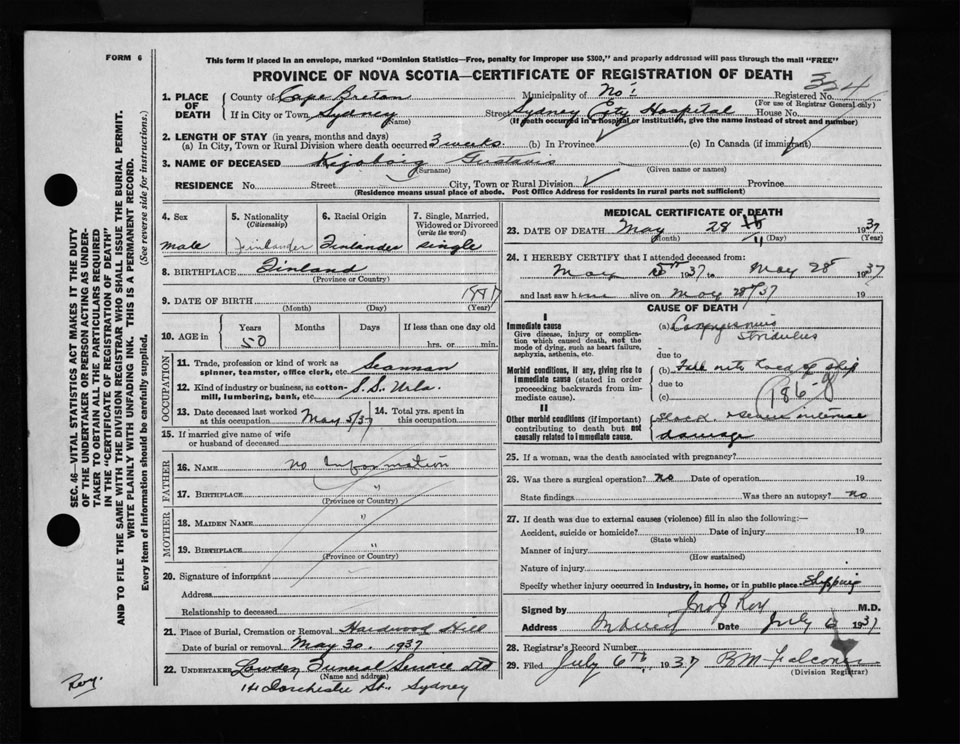 FORM 6
This form if placed in an envelope, marked "Dominion Statistics—Free, penalty for improper use $300," and properly addressed will pass through the mail "FREE"
PROVINCE OF NOVA SCOTIA—CERTIFICATE OF REGISTRATION OF DEATH
334
1. PLACE OF DEATH
County of Cape Breton Municipality of No: Registered No.
(For use of Registrar General only)
If in City or Town Sydney Street Sydney City Hospital House No.
(Name) (If death occurred in a hospital or institution, give the name instead of street and number)
2. LENGTH OF STAY (in years, months and days)
(a) In City, Town or Rural Division where death occurred 3 weeks (b) In Province (c) In Canada (if immigrant)
3. NAME OF DECEASED Gustavis
(Surname) (Given name or names)
RESIDENCE No. Street City, Town or Rural Division Province
(Residence means usual place of abode. Post Office Address for residents in rural parts not sufficient)
4. Sex male
5. Nationality (Citizenship) Finlander
6. Racial Origin Finlander
7. Single, Married, Widowed or Divorced (write the word) single
8. BIRTHPLACE Finland
(Province or Country)
9. DATE OF BIRTH 1887
(Month) (Day) (Year)
10. AGE in Years Months Days If less than one day
50 hrs. or min.
OCCUPATION
11. Trade, profession or kind of work as spinner, teamster, office clerk, etc. Seaman
12. Kind of industry or business, as cotton-mill, lumbering, bank, etc. S.S. Urla
13. Date deceased last worked at this occupation May 5/37
14. Total yrs. spent in this occupation
15. If married give name of wife or husband of deceased
FATHER
16. NAME no Information
17. BIRTHPLACE "
(Province or Country)
MOTHER
18. MAIDEN NAME "
19. BIRTHPLACE "
(Province or Country)
20. Signature of informant
Address
Relationship to deceased
21. Place of Burial, Cremation or Removal Hardwood Hill
Date of burial or removal May 30. 1937
22. UNDERTAKER Funeral Service Ltd
(Name and address)
Dorchester St. Sydney
MEDICAL CERTIFICATE OF DEATH
23. DATE OF DEATH May 28 1937
(Month) (Day) (Year)
24. I HEREBY CERTIFY that I attended deceased from:
May 5th 1937 to May 28 1937
and last saw him alive on May 28/37 19
CAUSE OF DEATH
I
Immediate cause
Give disease, injury or complication which caused death, not the mode of dying, such as heart failure, asphyxia, asthenia, etc.
(a)
due to
Morbid conditions, if any, giving rise to immediate cause (stated in order proceeding backwards from immediate cause).
(b) Fall into hold of ship
due to
(c) 186-8
II
Other morbid conditions (if important) contributing to death but not causally related to immediate cause.
shock severe
damage
25. If a woman, was the death associated with pregnancy?
26. Was there a surgical operation? no Date of operation 19
State findings Was there an autopsy? no
27. If death was due to external causes (violence) fill in also the following:—
Accident, suicide or homicide? Date of injury 19
(State which)
Manner of injury
(How sustained)
Nature of injury
Specify whether injury occurred in industry, in home, or in public place. Shipping
Signed by Jno J Roy M.D.
Address Date July 6 1937
28. Registrar's Record Number
29. Filed July 6th 1937 R M Falconer
(Division Registrar)
SEC. 46—VITAL STATISTICS ACT MAKES IT THE DUTY
OF THE UNDERTAKER OR PERSON ACTING AS UNDER-
TAKER TO OBTAIN ALL THE PARTICULARS REQUIRED
IN THE "CERTIFICATE OF REGISTRATION OF DEATH"
AND TO FILE THE SAME WITH THE DIVISION REGISTRAR WHO SHALL ISSUE THE BURIAL PERMIT.
WRITE PLAINLY WITH UNFADING INK. THIS IS A PERMANENT RECORD.
Every item of information should be carefully supplied. (See reverse side for instructions.)
Roy.